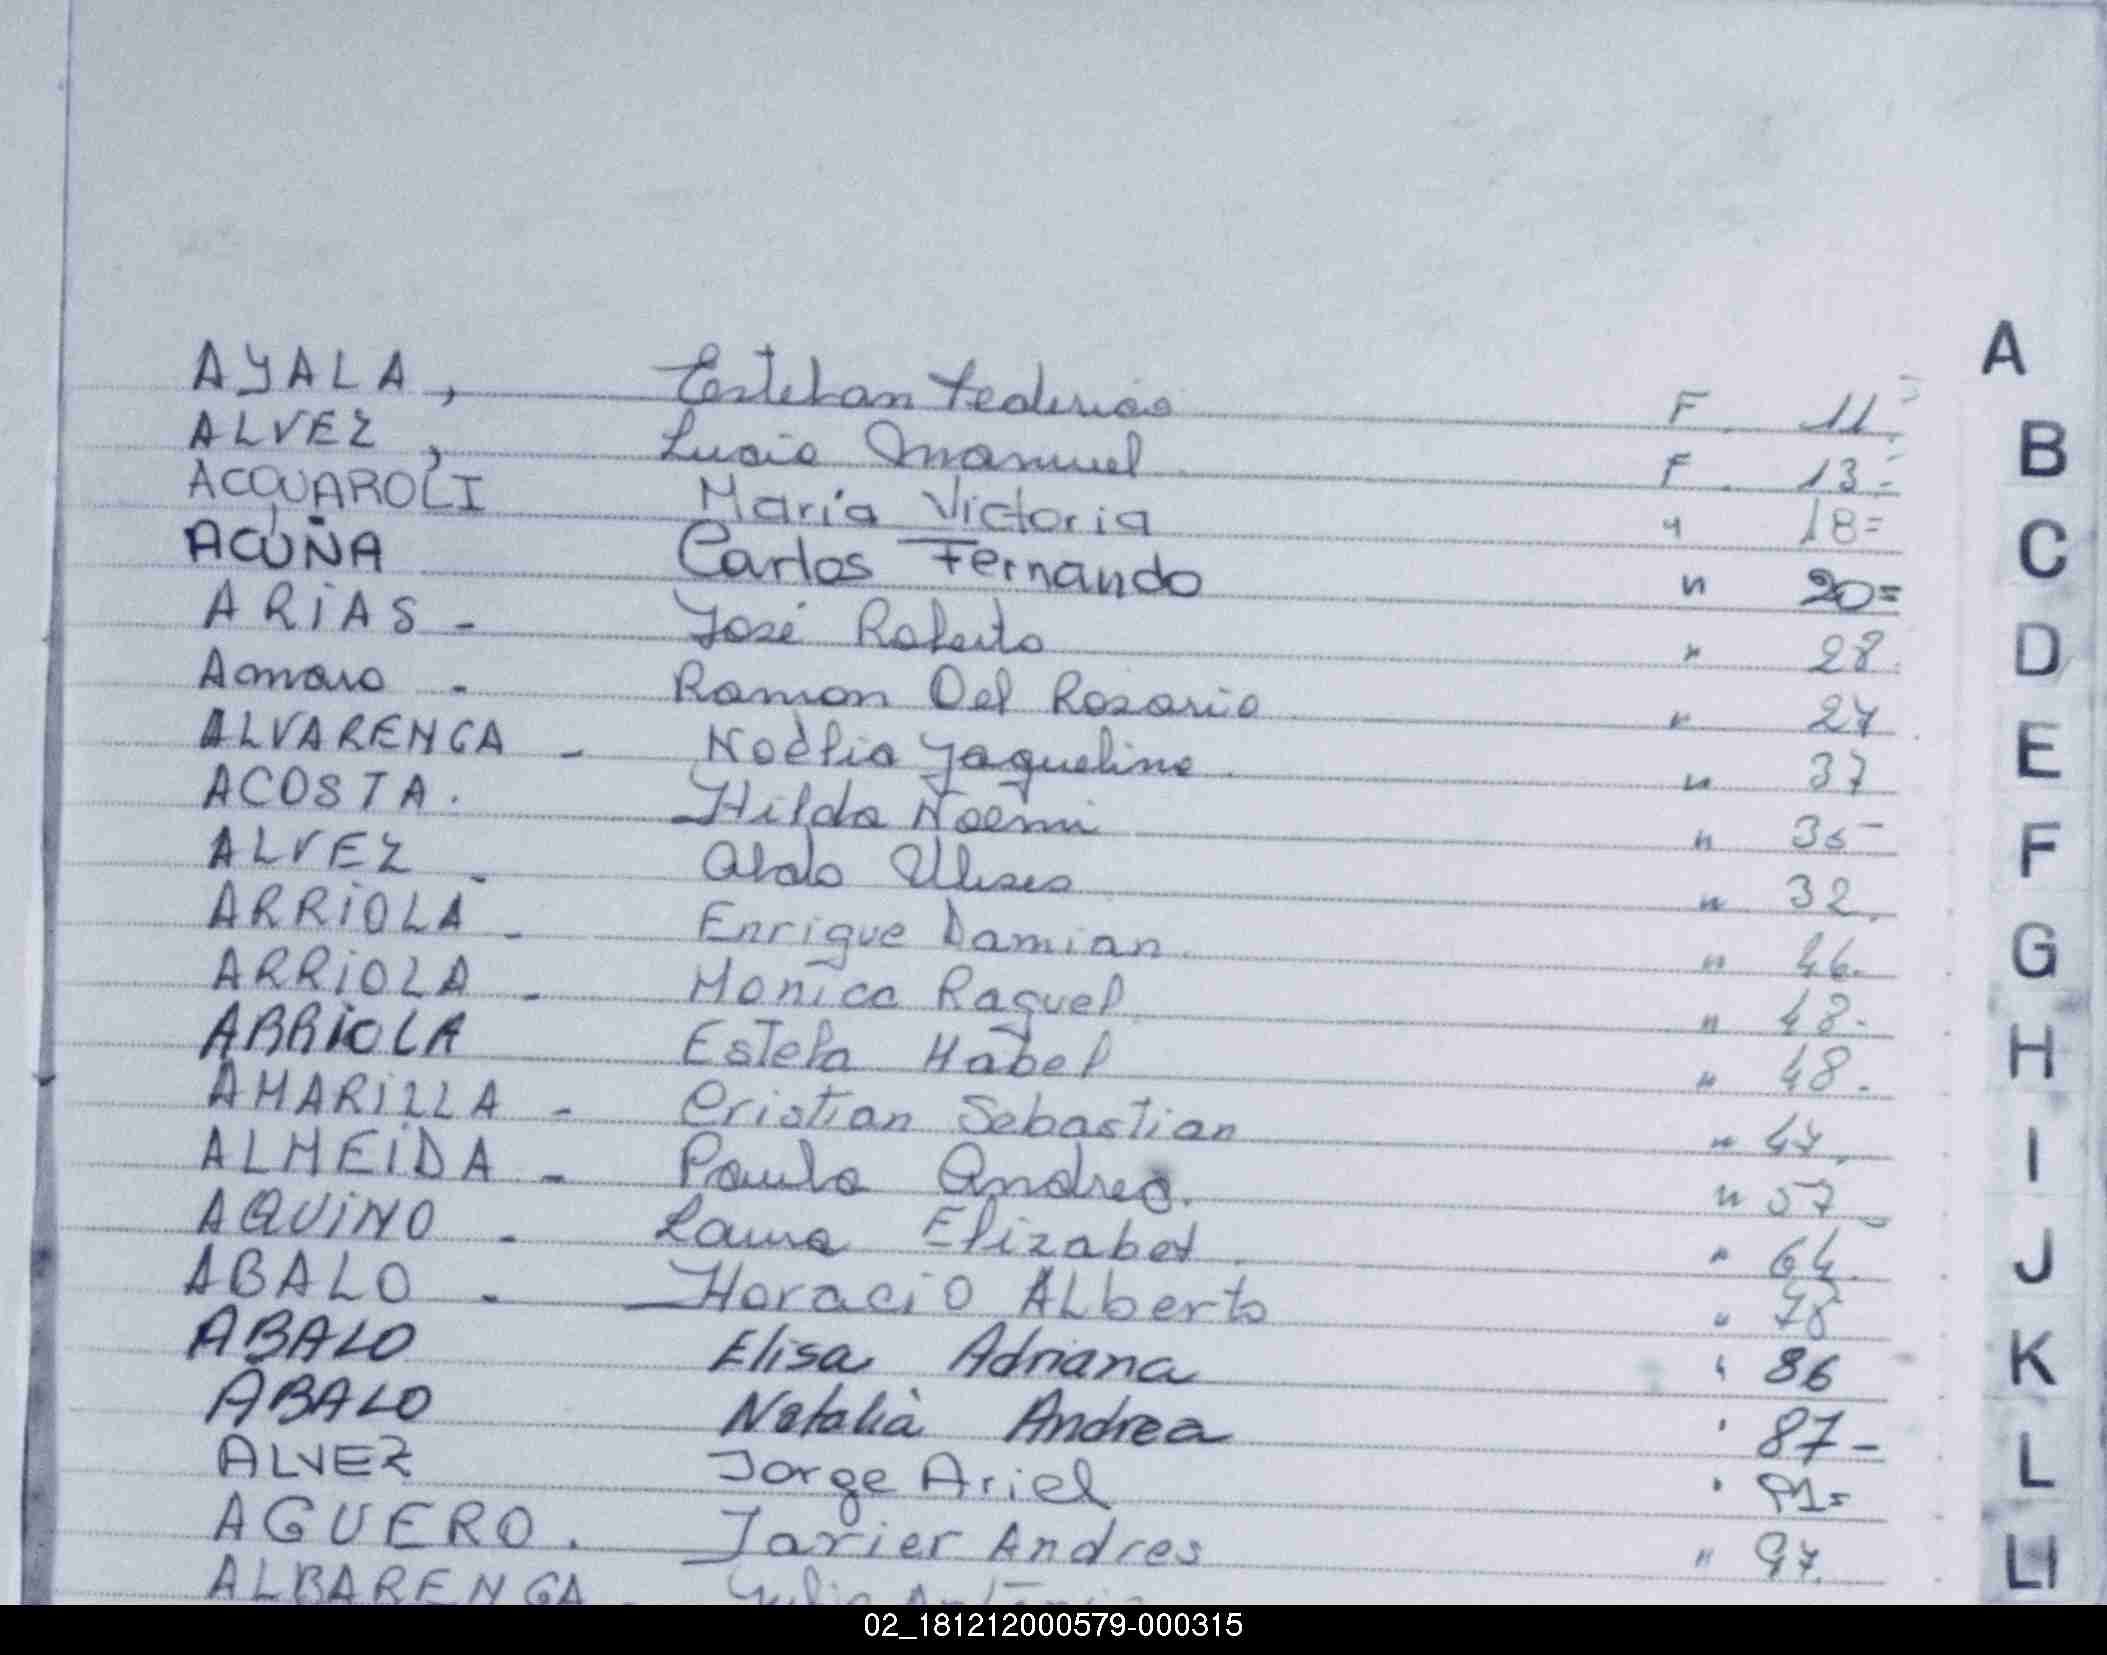 AYALA, Esteban Federico F. 11
ALVEZ, Lucio Manuel F. 13=
ACQUAROLI María Victoria " 18=
ACUÑA Carlos Fernando " 20=
ARIAS - José Roberto " 28
Amaro - Ramon Del Rosario " 27
ALVARENGA - Noèlia Jaqueline " 37
ACOSTA. Hilda Noemi " 35-
ALVEZ - Aldo Ulises " 32.
ARRIOLA - Enrique Damian. " 46.
ARRIOLA - Monica Raquel " 48-
ARRIOLA Estela Mabel " 48.
AMARILLA - Cristian Sebastian " 47.
ALMEIDA - Paula Andrea. " 57
AQUINO - Laura Elizabet " 64.
ABALO - Horacio Alberto " 78
ABALO Elisa Adriana " 86
ABALO Natalia Andrea " 87-
ALVEZ Jorge Ariel " 91=
AGUERO. Javier Andres " 97.
ALBARENGA - Julio Antonio
A
B
C
D
E
F
G
H
I
J
K
L
Ll
02_181212000579-000315